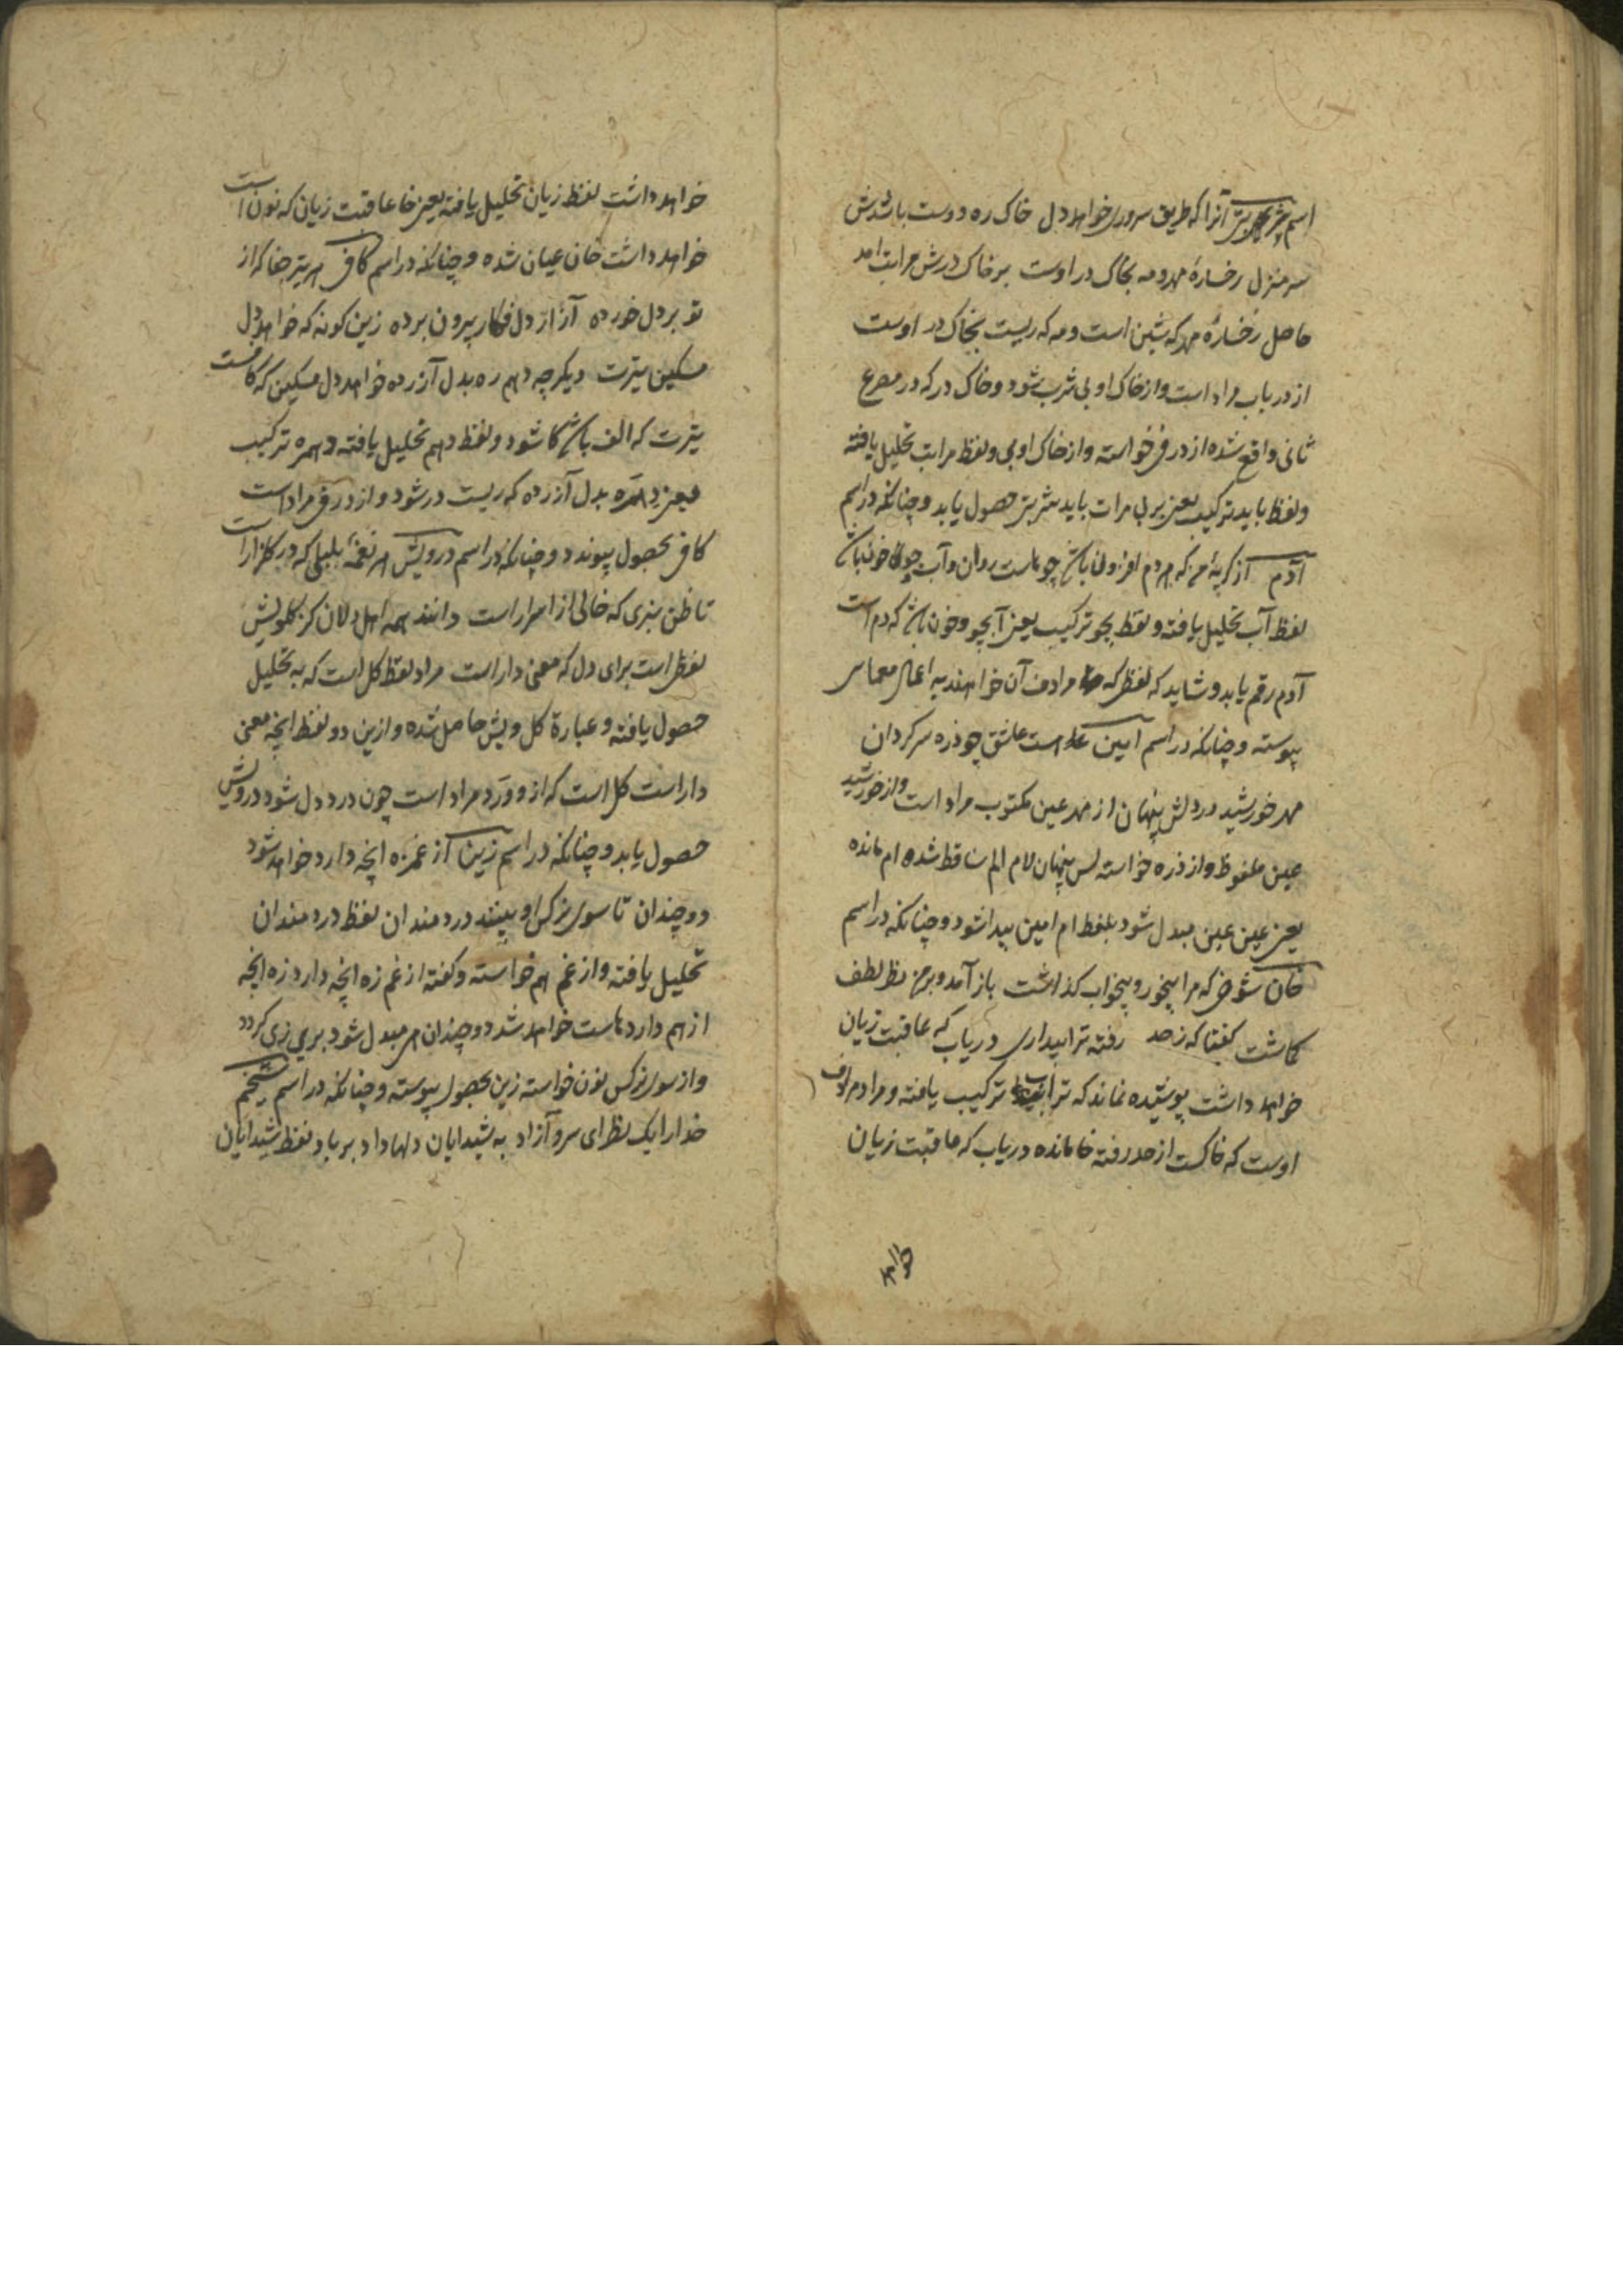 اسم آنرا که طریق سروری خواهد دل خاک ره دوست باشدش
سر منزل رخسارهٔ مه بخاک در اوست بر خاک درش مراتب امد
حاصل رخسارهٔ مهر که شین است و مه که ریست بخاک در اوست
از در باب مراد است و از خاک او بی شرب شود و خاک در که در مصرع
ثانی واقع شده از در فی خواسته و از خاک او بی و لفظ مراتب تحلیل یافته
و لفظ باید ترکیب یعنی بر بی مرات باید حصول یابد و چنانکه در اسم
آدم از کریهٔ من که هردم افزون باش چو ماست روان و آب چون باش
لفظ آب تحلیل یافته و لفظ بجو ترکیب یعنی آ بجو و خون باش که دم است
آدم رقم یابد و شاید که لفظی که مرادف آن خواهند به اعمال معماس
پیوسته و چنانکه در اسم امین است عاشق چو ذره سرکردان
مهر خورشید در دلش پنهان از مهر عین مکتوب مراد است و از خورشید
عین ملفوظ و از ذره خواسته پس پنهان لام الم ساقط شده ام مانده
یعنی عین عین مبدل شود بلفظ ام امین پیدا شود و چنانکه در اسم
خان شوخی که مرا بیخور و بیخواب کذاشت باز آمد و بر من نظر لطف
کماشت کفتا که ز حد رفته ترا بیداری دریاب که عاقبت زیان
خواهد داشت پوشیده نماند که تراب ترکیب یافته و مراد مرادف
اوست که خاکست از حد رفته خا مانده دریاب که عاقبت زیان
خواهد
خواهد داشت لفظ زیان تحلیل یافته یعنی خا عاقبت زیان که نون است
خواهد داشت خان عیان شده و چنانکه در اسم کافی هر تیر جفا که از
تو بر دل خورده آزار دل فکار بیرون برده زین کونه که خواهد دل
مسکین تیرت دیکر چه دهم ره بدل آزرده خواهد دل مسکین که کافست
تیرت که الف باش کا شود و لفظ دهم تحلیل یافته و همره ترکیب
یعنی د همره بدل آزرده که ریست در شود و از در فی مراد است
کافی بحصول پیوندد و چنانکه در اسم درویش هر نغمهٔ بلبلی که در کلزار است
تا ظن نبری که خالی از اسرار است دانند همه اهل دلان کز کلویش
لفظی است برای دل که معنی دار است مراد لفظ کل است که به تحلیل
حصول یافته و عبارة کل ویش حاصل شده و ازین دو لفظ انچه معنی
دار است کل است که از و ورد مراد است چون درد دل شود درویش
حصول یابد و چنانکه در اسم زین از غمزه انچه دارد خواهد شود
دو چندان تا سوی نرکس او بینند دردمندان لفظ دردمندان
تحلیل یافته و از غم هم خواسته و کفته از غم زه انچه دارد زه انچه
از هم دارد هاست خواهد شد دو چندان هی مبدل شود بر یی زی کردد
و از سوی نرکس نون خواسته زین بحصول پیوسته و چنانکه در اسم شیخم
خدا را یک نظر ای سرو آزاد به شیدایان دلها داد بر باد لفظ شیدایان